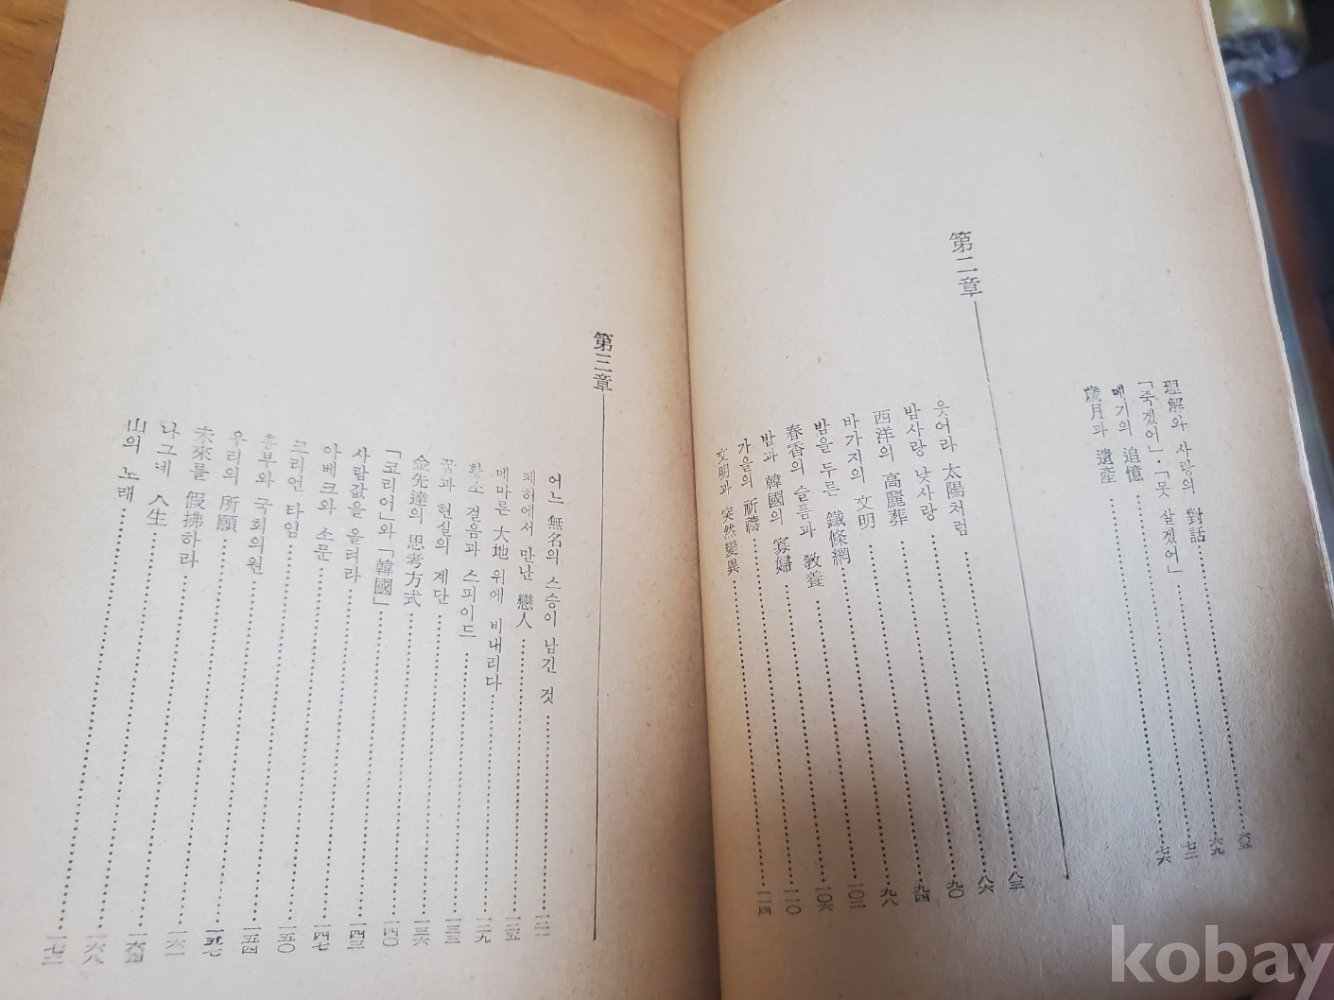 理解와 사랑의 對話 ⋯⋯ 六五
「죽겠어」·「못 살겠어」 ⋯⋯ 六九
메기의 追憶 ⋯⋯ 七二
歲月과 遺產 ⋯⋯ 七六
第二章
웃어라 太陽처럼 ⋯⋯ 八三
밤사랑 낮사랑 ⋯⋯ 八六
西洋의 高麗葬 ⋯⋯ 九〇
바가지의 文明 ⋯⋯ 九四
밤을 두른 鐵條網 ⋯⋯ 九八
春香의 슬픔과 敎養 ⋯⋯ 一〇二
밤과 韓國의 寡婦 ⋯⋯ 一〇六
가을의 祈禱 ⋯⋯ 一一〇
文明과 突然變異 ⋯⋯ 一一四
第三章
어느 無名의 스승이 남긴 것 ⋯⋯ 一二一
폐허에서 만난 戀人 ⋯⋯ 一二五
메마른 大地 위에 비내리다 ⋯⋯ 一二九
황소 걸음과 스피이드 ⋯⋯ 一三三
꿈과 현실의 계단 ⋯⋯ 一三六
金先達의 思考方式 ⋯⋯ 一四〇
「코리어」와 「韓國」 ⋯⋯ 一四三
사람값을 올려라 ⋯⋯ 一四七
아베크와 소문 ⋯⋯ 一五〇
코리언 타임 ⋯⋯ 一五四
흥부와 국회의원 ⋯⋯ 一五七
우리의 所願 ⋯⋯ 一六一
未來를 假拂하라 ⋯⋯ 一六五
나그네 人生 ⋯⋯ 一六八
山의 노래 ⋯⋯ 一七二
kobay